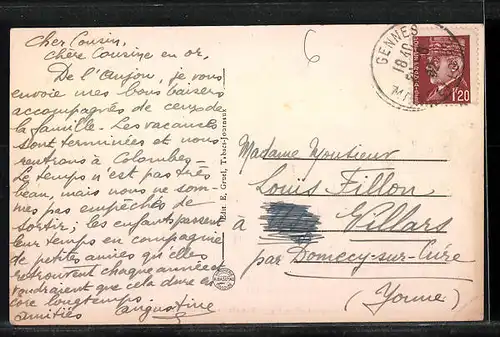 Cher Cousin,
Chère Cousine en or,
De l'Anjou, je vous
envoie mes bons baisers
accompagnés de ceux de
la famille. Les vacances
sont terminées et nous
rentrons à Colombes.
Le temps n'est pas très
beau, mais nous ne som-
mes pas empêchés de
sortir; les enfants passent
leur temps en compagnie
de petites amies qu'elles
retrouvent chaque année et
voudraient que cela dure en-
core longtemps.
amitiés Augustine
6
Edit. E. Gruel, Tabacs-Journaux
GENNES
18 40
1F20
Madame Monsieur
Louis Fillon
à Villars
par Domecy-sur-Cure
(Yonne)